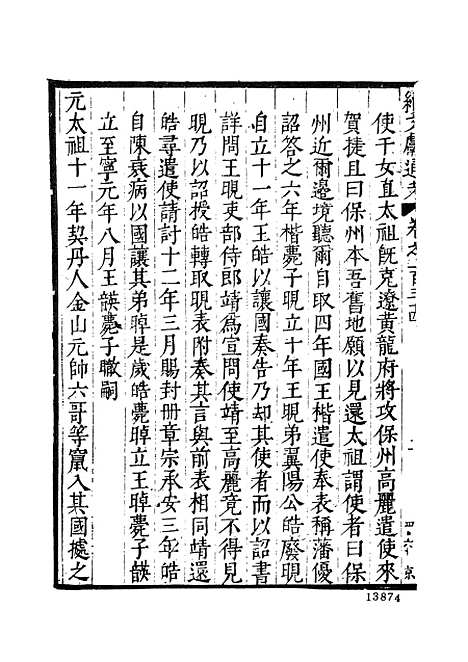 續文獻通考 卷之二百三十四
使于女直太祖旣克遼黃龍府將攻保州高麗遣使來
賀捷且曰保州本吾舊地願以見還太祖謂使者曰保
州近爾邊境聽爾自取四年國王楷遣使奉表稱藩優
詔答之六年楷薨子晛立十年王晛弟翼陽公皓廢晛
自立十一年王皓以讓國奏告乃却其使者而以詔書
詳問王晛吏部侍郎靖爲宣問使靖至高麗竟不得見
晛乃以詔授皓轉取晛表附奏其言與前表相同靖還
皓尋遣使請討十二年三月賜封册章宗承安三年皓
自陳衰病以國讓其弟晫是歲皓薨晫立王晫薨子韺
立至寧元年八月王韺薨子瞮嗣
元太祖十一年契丹人金山元帥六哥等竄入其國據之
13874